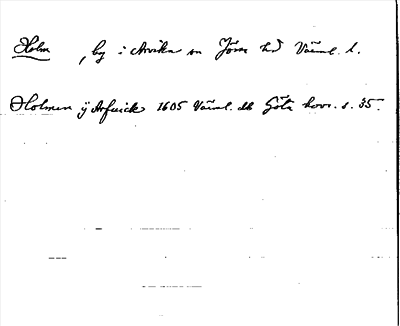 Holm , by i Arvika sn Jösse hd Värml. l.
Holmen ij Arfwick 1605 Värml. db Göta hovr. s. 35.